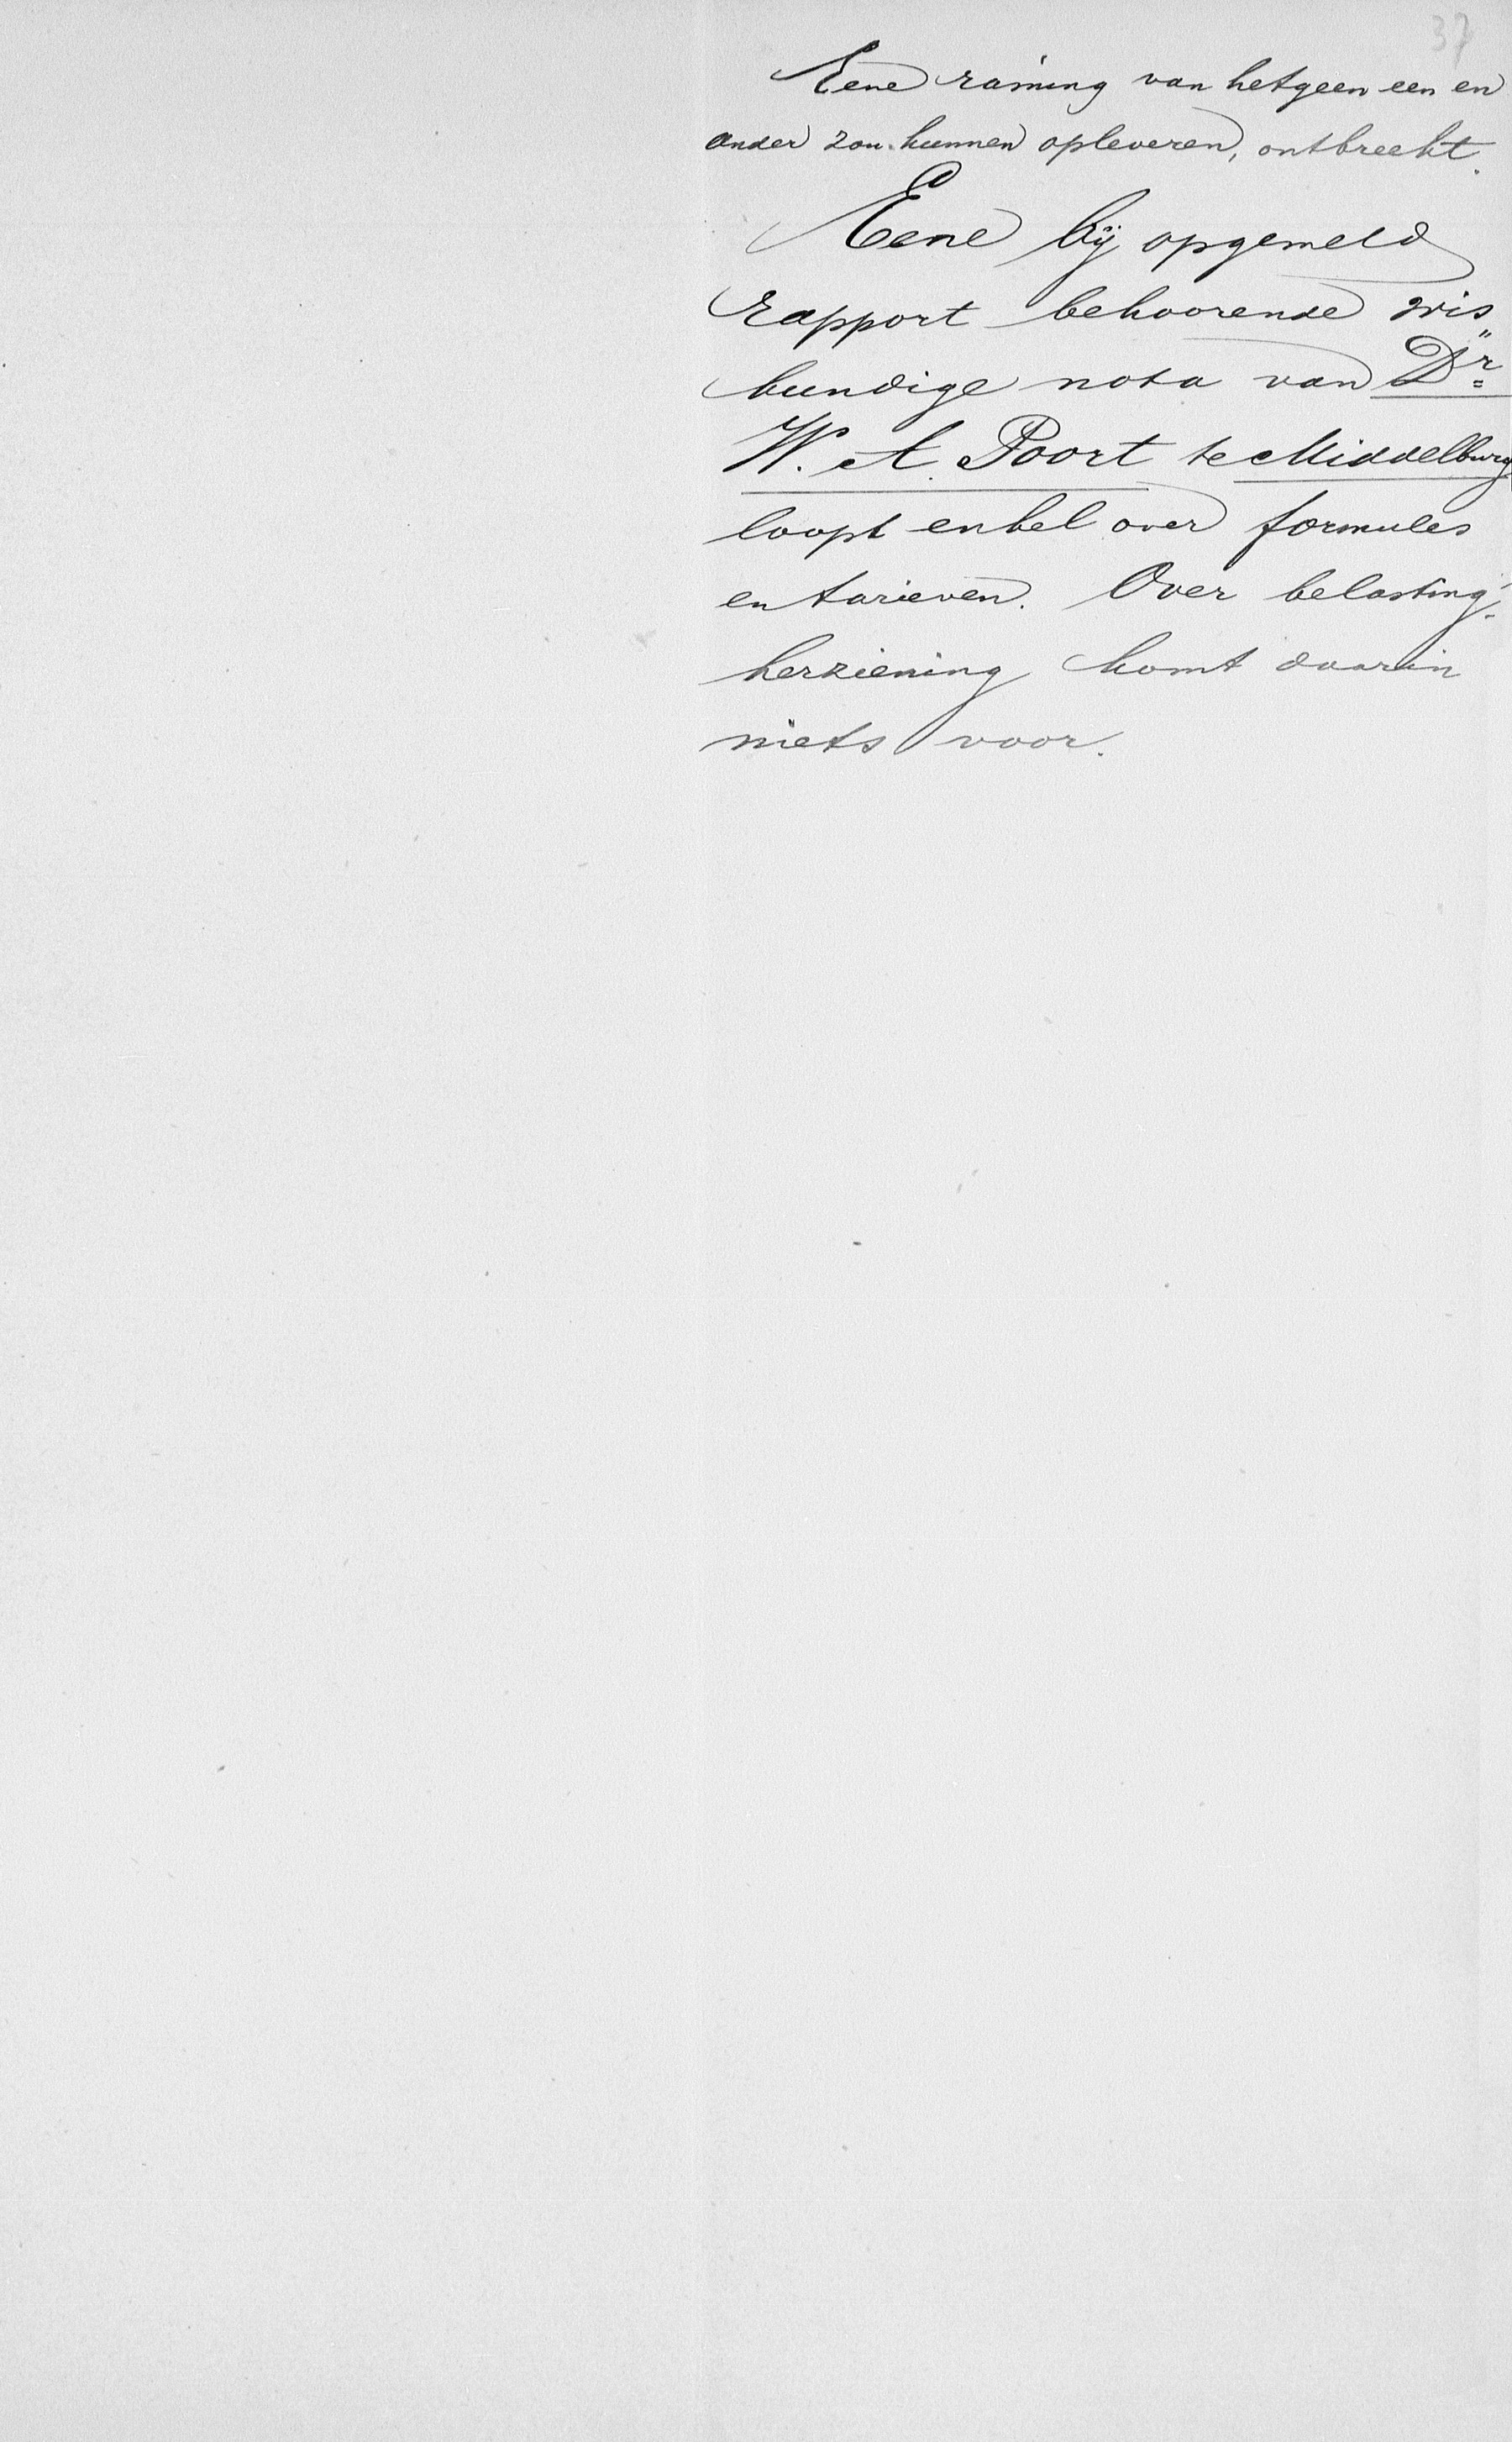 37
Eene raming van hetgeen een en
ander zou kunnen opleveren, ontbreekt.
Eene bij opgemeld
rapport behoorende wis"
kundige nota van Dr
W. A. Poort te Middelburg
loopt enkel over formules
en tarieven. Over belasting"
herziening komt daarin
niets voor.